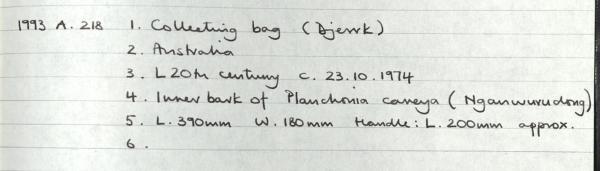 1993 A. 218 1. Collecting bag (Djerrk)
2. Australia
3. L 20th century c. 23.10.1974
4. Inner bark of Planchonia careya (Nganwurudong)
5. L. 390mm W. 180mm Handle: L. 200mm approx.
6.